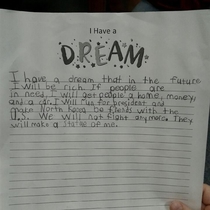 I Have a
DREAM
I have a dream that in the future
I will be rich. If people are
in need I will get people a home, money,
and a car. I will run for president and
make North Korea be friends with the
U.S. We will not fight anymore. They
will make a statue of me.